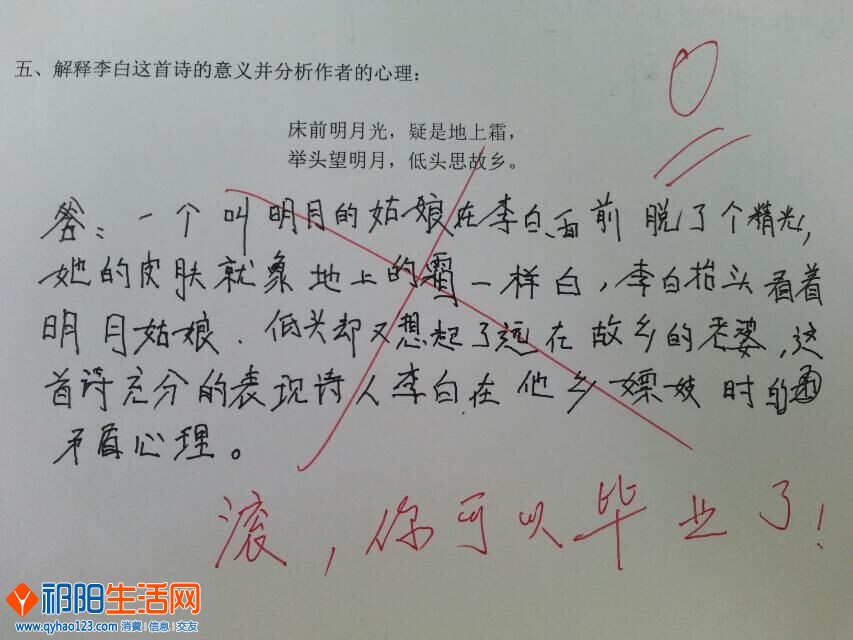 五、解释李白这首诗的意义并分析作者的心理：
0
床前明月光，疑是地上霜，
举头望明月，低头思故乡。
答：一个叫明月的姑娘在李白面前脱了个精光，
她的皮肤就象地上的霜一样白，李白抬头看着
明月姑娘．低头却又想起了远在故乡的老婆，这
首诗充分的表现诗人李白在他乡嫖妓时的
矛盾心理。
滚，你可以毕业了！
祁阳生活网
www.qyhao123.com 消費 | 信息 | 交友